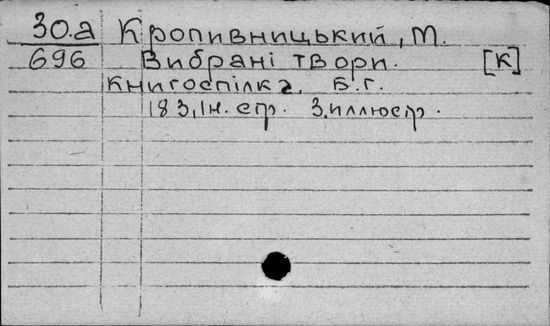 30.а Кропивницький, М.
696 Вибрані твори. [К]
Книгоспілка, Б.г.
183, 1н. стр. З иллюстр.